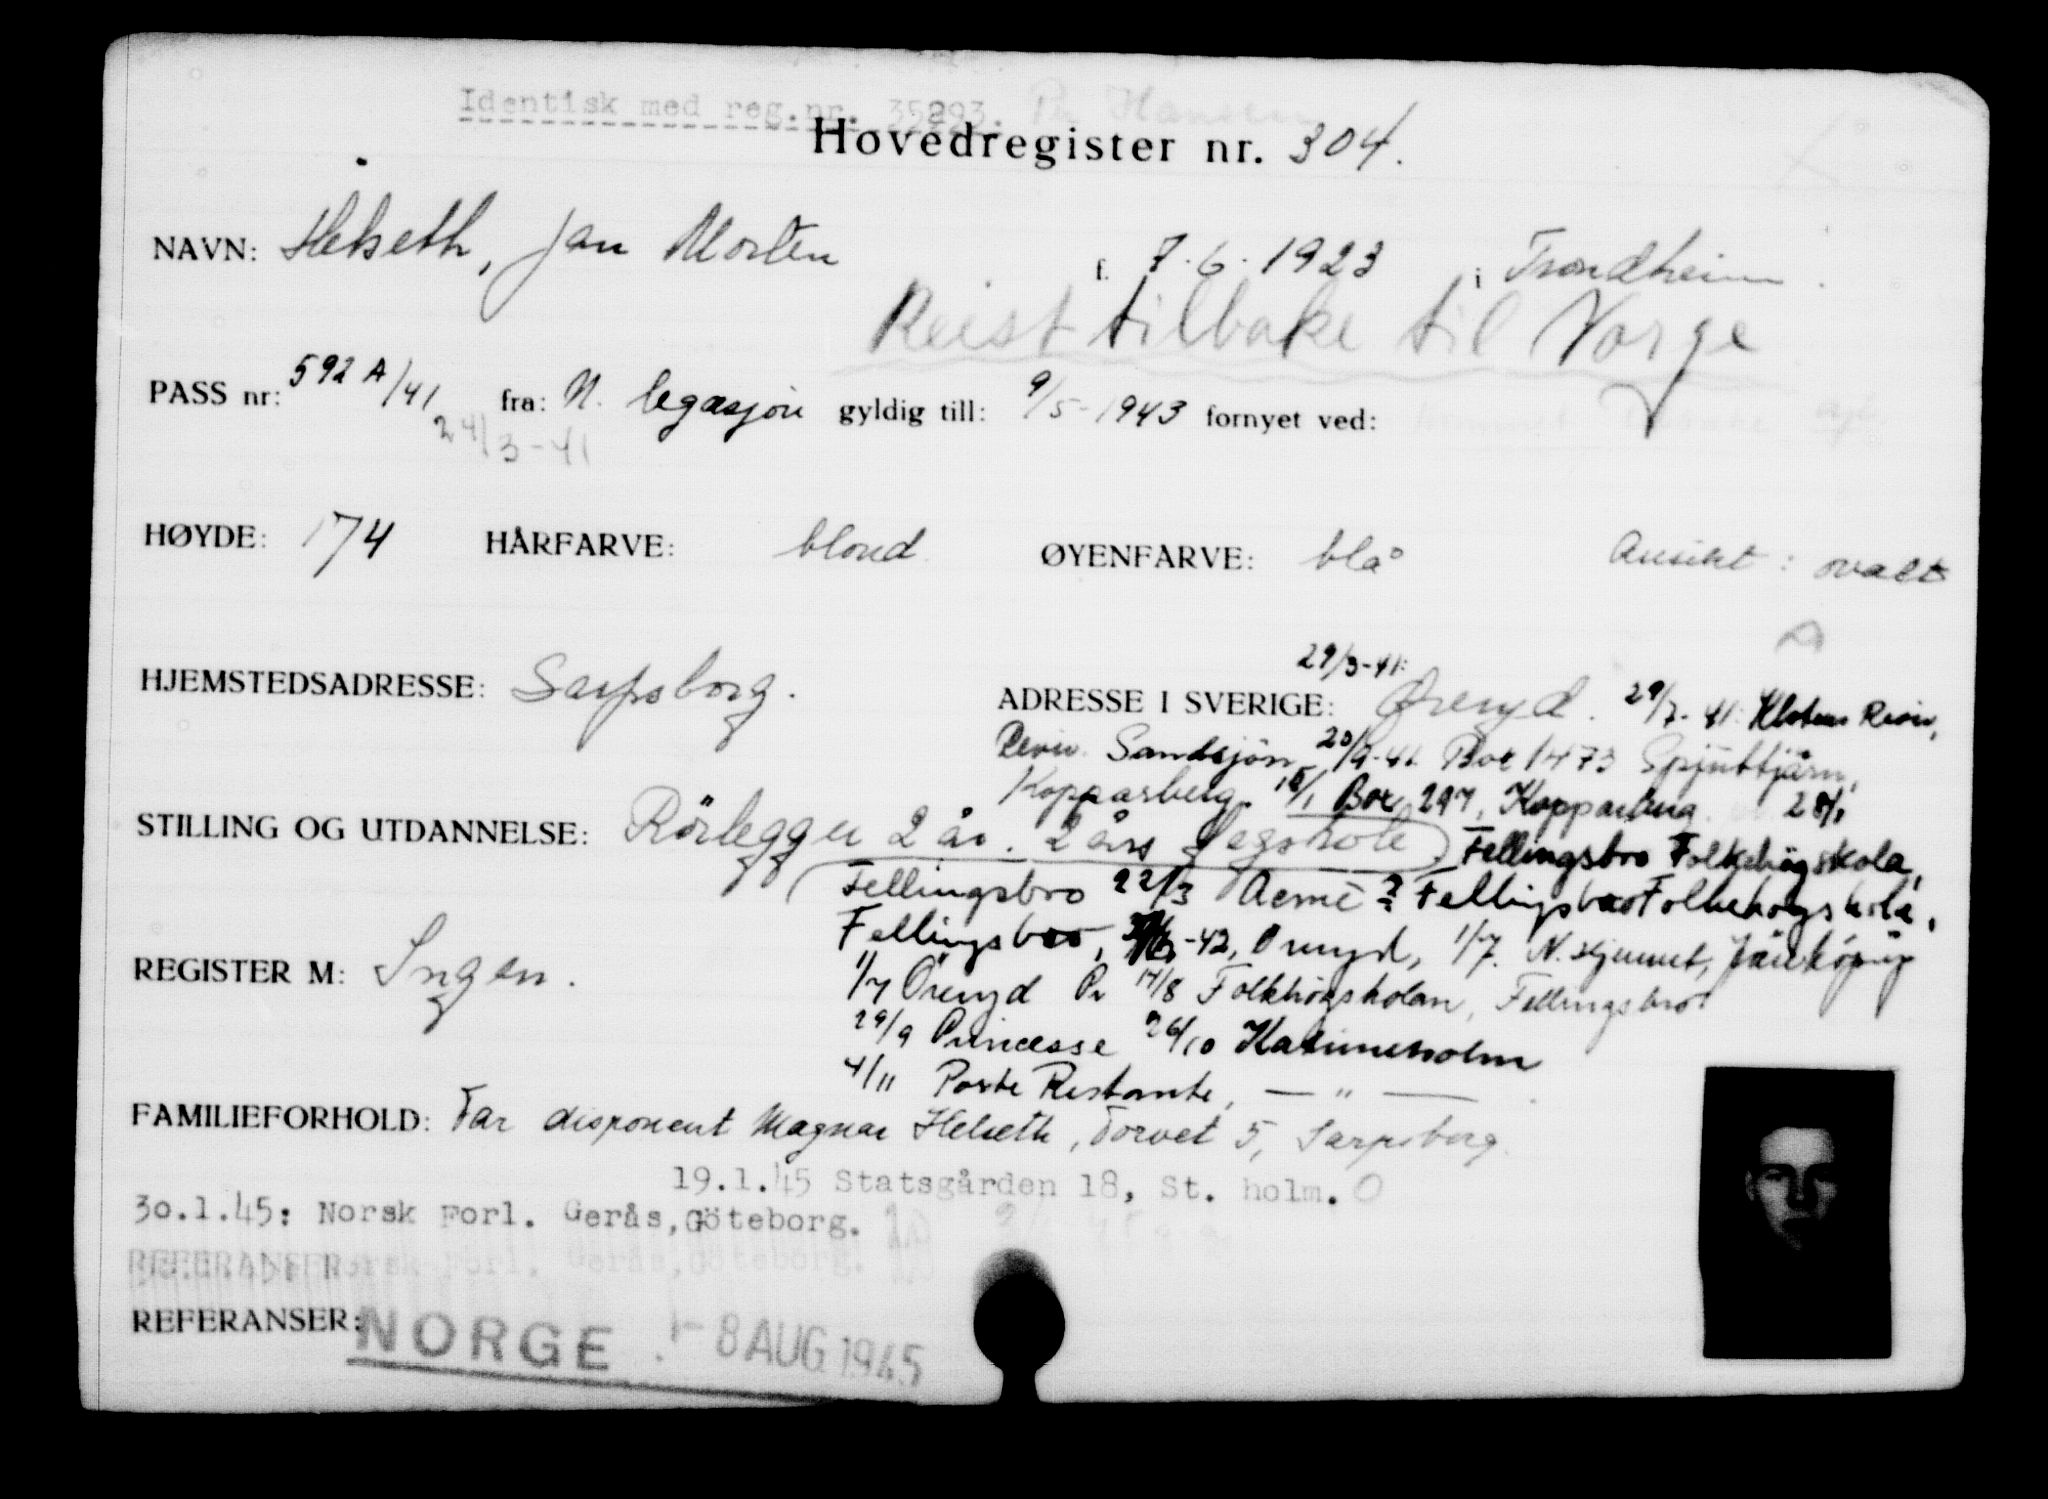 Identisk med reg.nr. 35293. Per Hansen
Hovedregister nr. 304.
NAVN: Helseth, Jan Morten f. 7.6.1923 i Trondheim.
Reist tilbake til Norge
PASS nr: 592 A/41 fra: N. legasjon gyldig till: 9/5-1943 fornyet ved:
24/3-41
HØYDE: 174 HÅRFARVE: blond ØYENFARVE: blå Ansikt: ovalt
29/3-41:
HJEMSTEDSADRESSE: Sarpsborg. ADRESSE I SVERIGE: Øreryd. 29/7-41:
Sandsjön 20/9-41 Box 1473 Spjuttjärn,
Kopparberg. Box 297, Kopparberg
STILLING OG UTDANNELSE: Rörlegger 2 år. 2 års fagskole Fellingsbro Folkehögskola,
Fellingsbro 22/3 Acme ? Fellingsbro Folkehögskola,
Fellingsbro, -42, Öreryd, 1/7. N. hjemmet, Jönköping
REGISTER M: Ingen.
1/7 Öreryd Pr 17/8 Folkhögskolan, Fellingsbro.
29/9 Princesse 26/10 Katrineholm
4/11 Poste Restante, — " —
FAMILIEFORHOLD: Far disponent Magnar Helseth, Torvet 5, Sarpsborg.
19.1.45 Statsgården 18, St. holm. O
30.1.45: Norsk Forl. Gerås, Göteborg.
REFERANSER: Norsk Forl. Gerås, Göteborg.
REFERANSER: NORGE - 8 AUG 1945